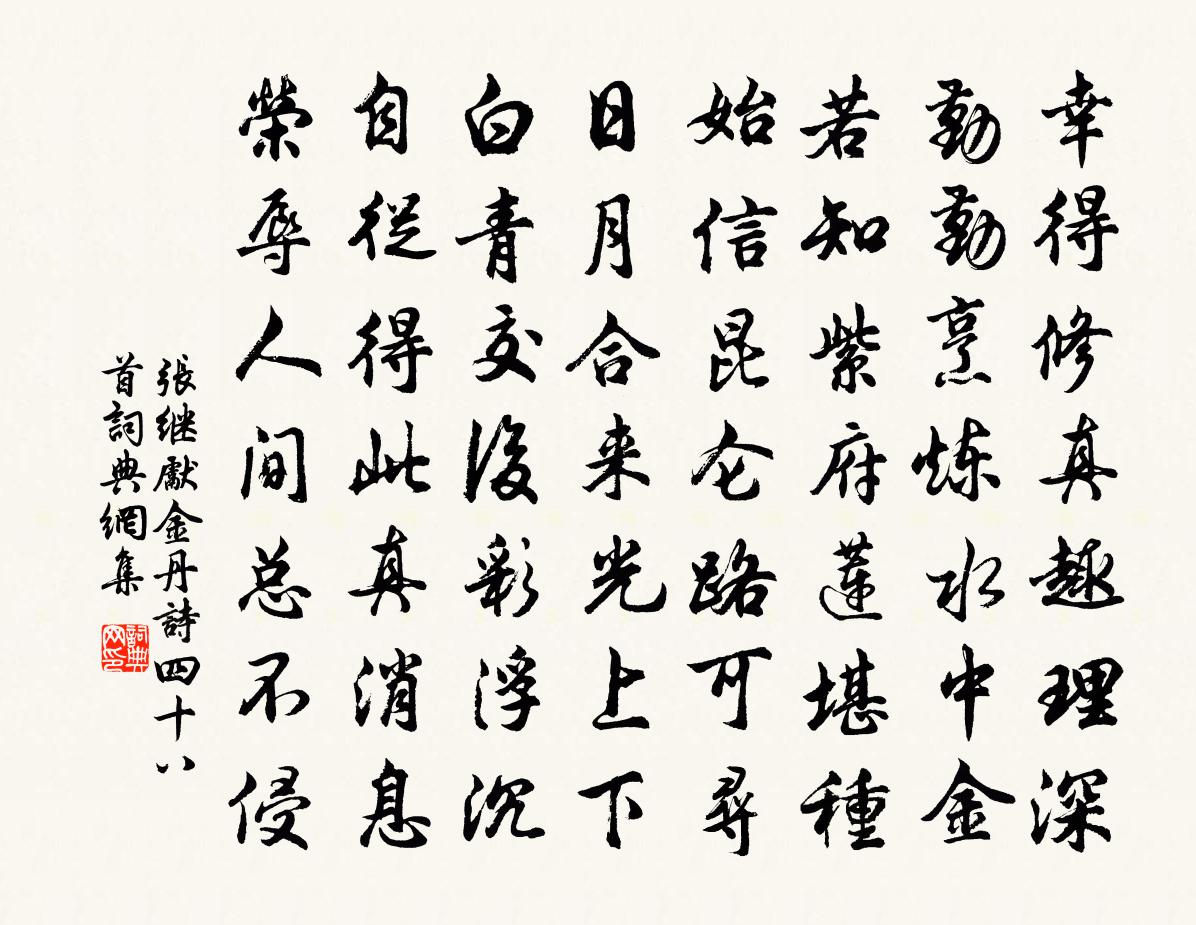 幸得修真趣理深
勤勤烹炼水中金
若知紫府蓮堪種
始信昆仑路可尋
日月合来光上下
白青交後彩浮沉
自從得此真消息
榮辱人间总不侵
張继獻金丹詩四十八
首詞典網集
詞典网印